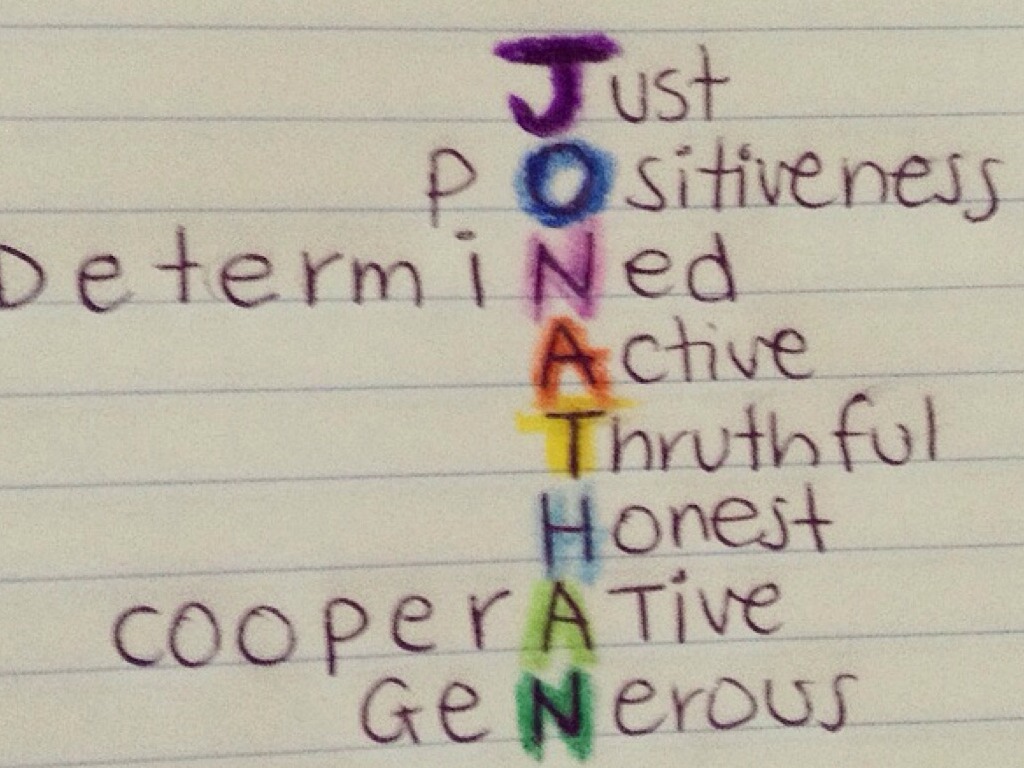 Just
POsitiveness
DetermiNed
Active
Thruthful
Honest
cooperATive
GeNerous